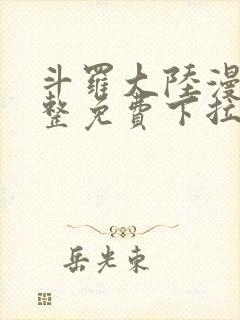 斗羅大陸漫
整免費下拉
岳光東